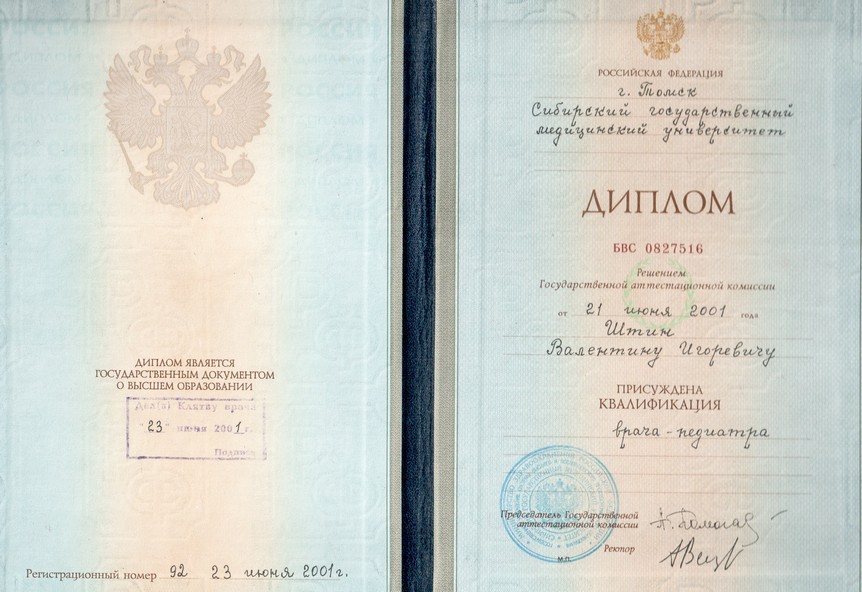 ДИПЛОМ ЯВЛЯЕТСЯ
ГОСУДАРСТВЕННЫМ ДОКУМЕНТОМ
О ВЫСШЕМ ОБРАЗОВАНИИ
Дал(а) Клятву врача
"23" июня 2001 г.
Подпись
Регистрационный номер 92 23 июня 2001г.
РОССИЙСКАЯ ФЕДЕРАЦИЯ
г. Томск
Сибирский государственный
медицинский университет
ДИПЛОМ
БВС 0827516
Решением
Государственной аттестационной комиссии
от 21 июня 2001 года
Штин
Валентину Игоревичу
ПРИСУЖДЕНА
КВАЛИФИКАЦИЯ
врача-педиатра
Председатель Государственной
аттестационной комиссии
Ректор
М.П.